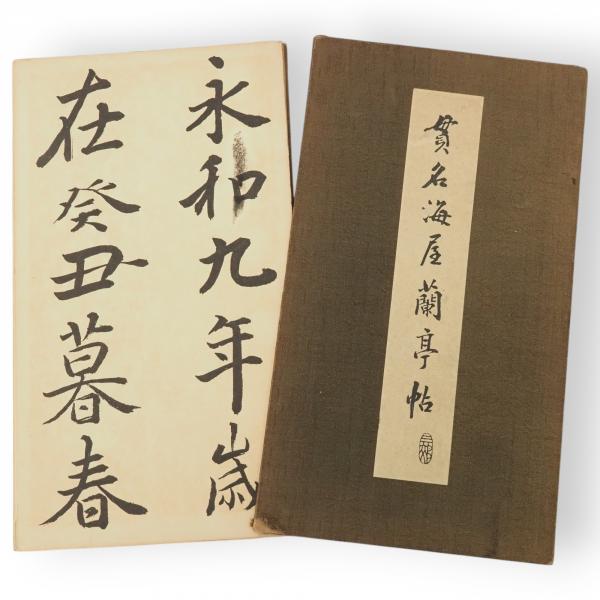 永和九年歳
在癸丑暮春
貫名海屋蘭亭帖